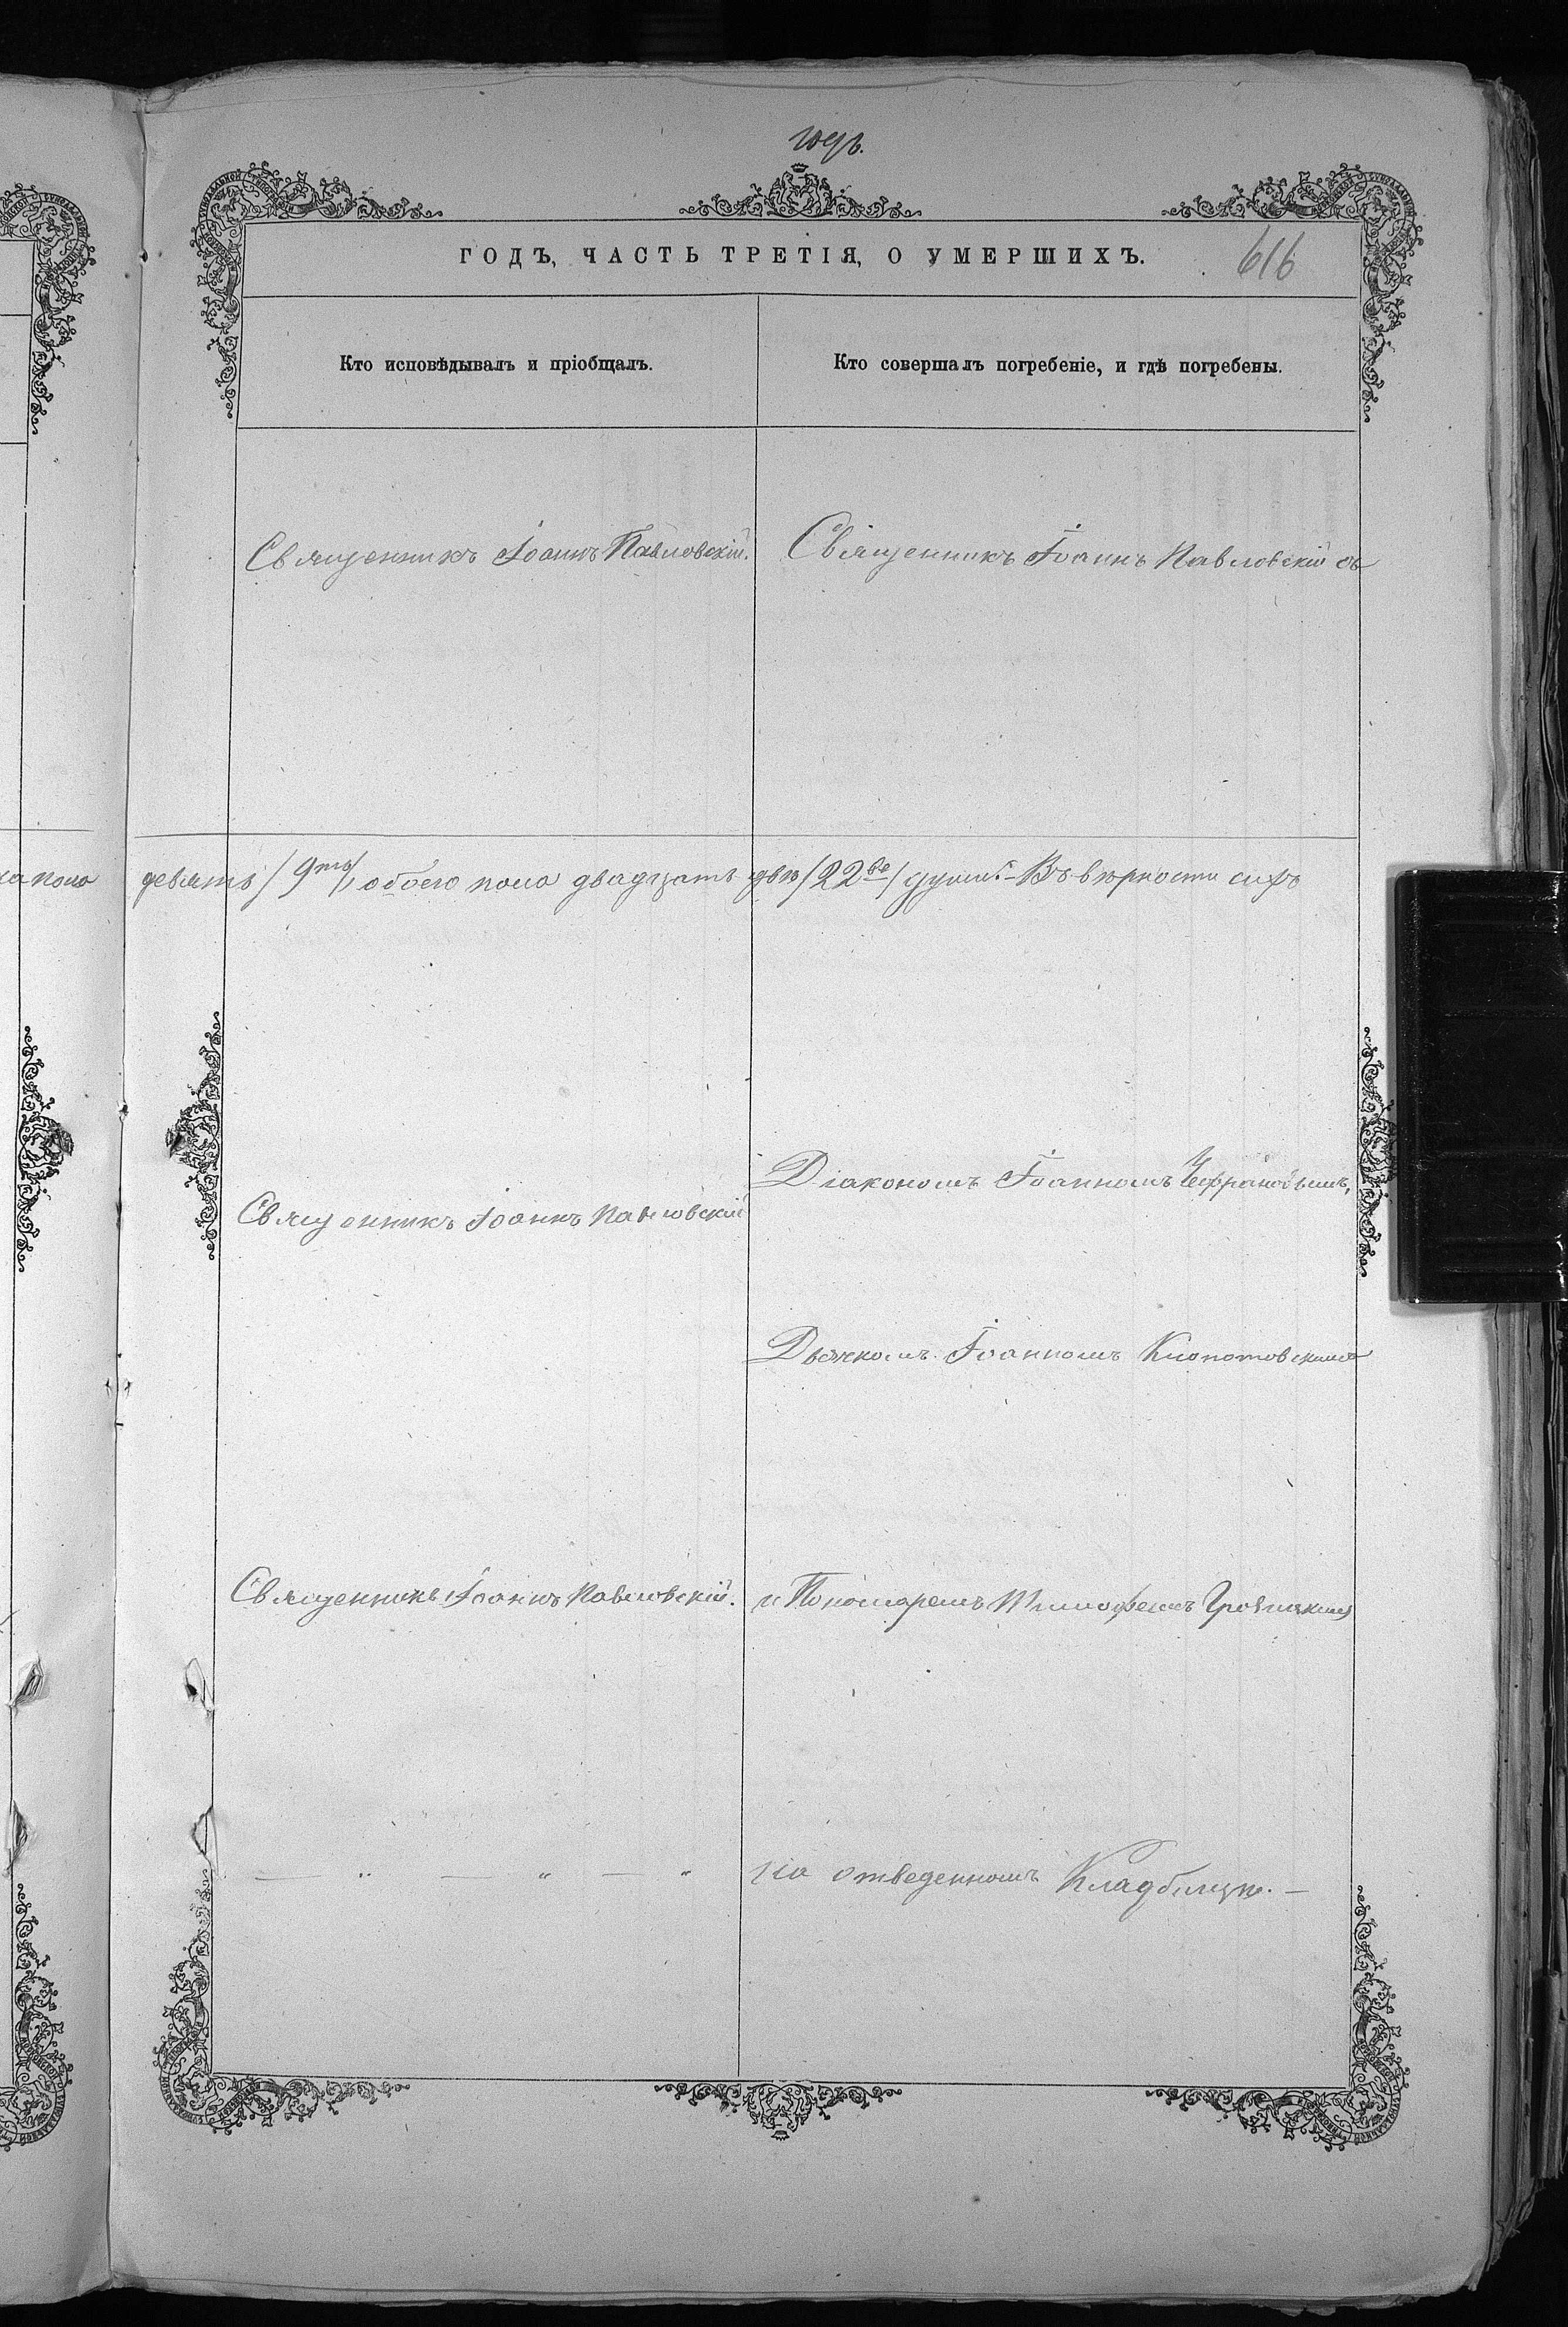 годъ.
ГОДЪ, ЧАСТЬ ТРЕТІЯ, О УМЕРШИХЪ.
616
Кто исповѣдывалъ и пріобщалъ.
Кто совершалъ погребеніе, и гдѣ погребены.
Священникъ Іоаннъ Павловскій.
Священникъ Іоаннъ Павловскій съ
пола
девять /9ть/, обоего пола двадцать двѣ /22ве/ душъ. – Въ вѣрности сихъ
Діакономъ Іоанномъ
Священникъ Іоаннъ Павловскій
Дьячкомъ Іоанномъ Клопотовскимъ
Священникъ Іоаннъ Павловскій.
и Пономаремъ Тимофеемъ
— " — " — "
на отведенномъ Кладбищѣ. —